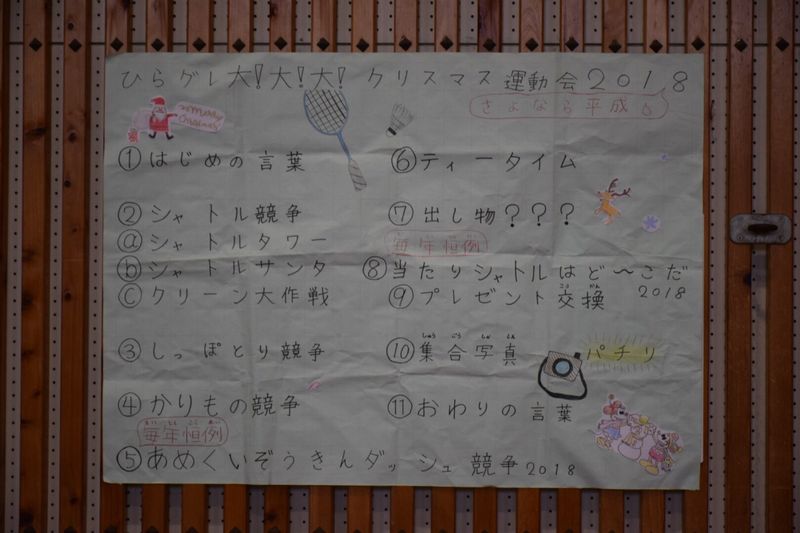 ひらグレ大!大!大! クリスマス 運動会2018
さよなら平成
merry Christmas
①はじめの言葉
②シャトル競争
ⓐシャトルタワー
ⓑシャトルサンタ
Ⓒクリーン大作戦
③しっぽとり競争
④かりもの競争
毎年恒例
⑤あめくいぞうきんダッシュ競争2018
⑥ティータイム
⑦出し物???
毎年恒例
⑧当たりシャトルはど〜こだ
2018
⑨プレゼント交換
⑩集合写真 パチリ
⑪おわりの言葉